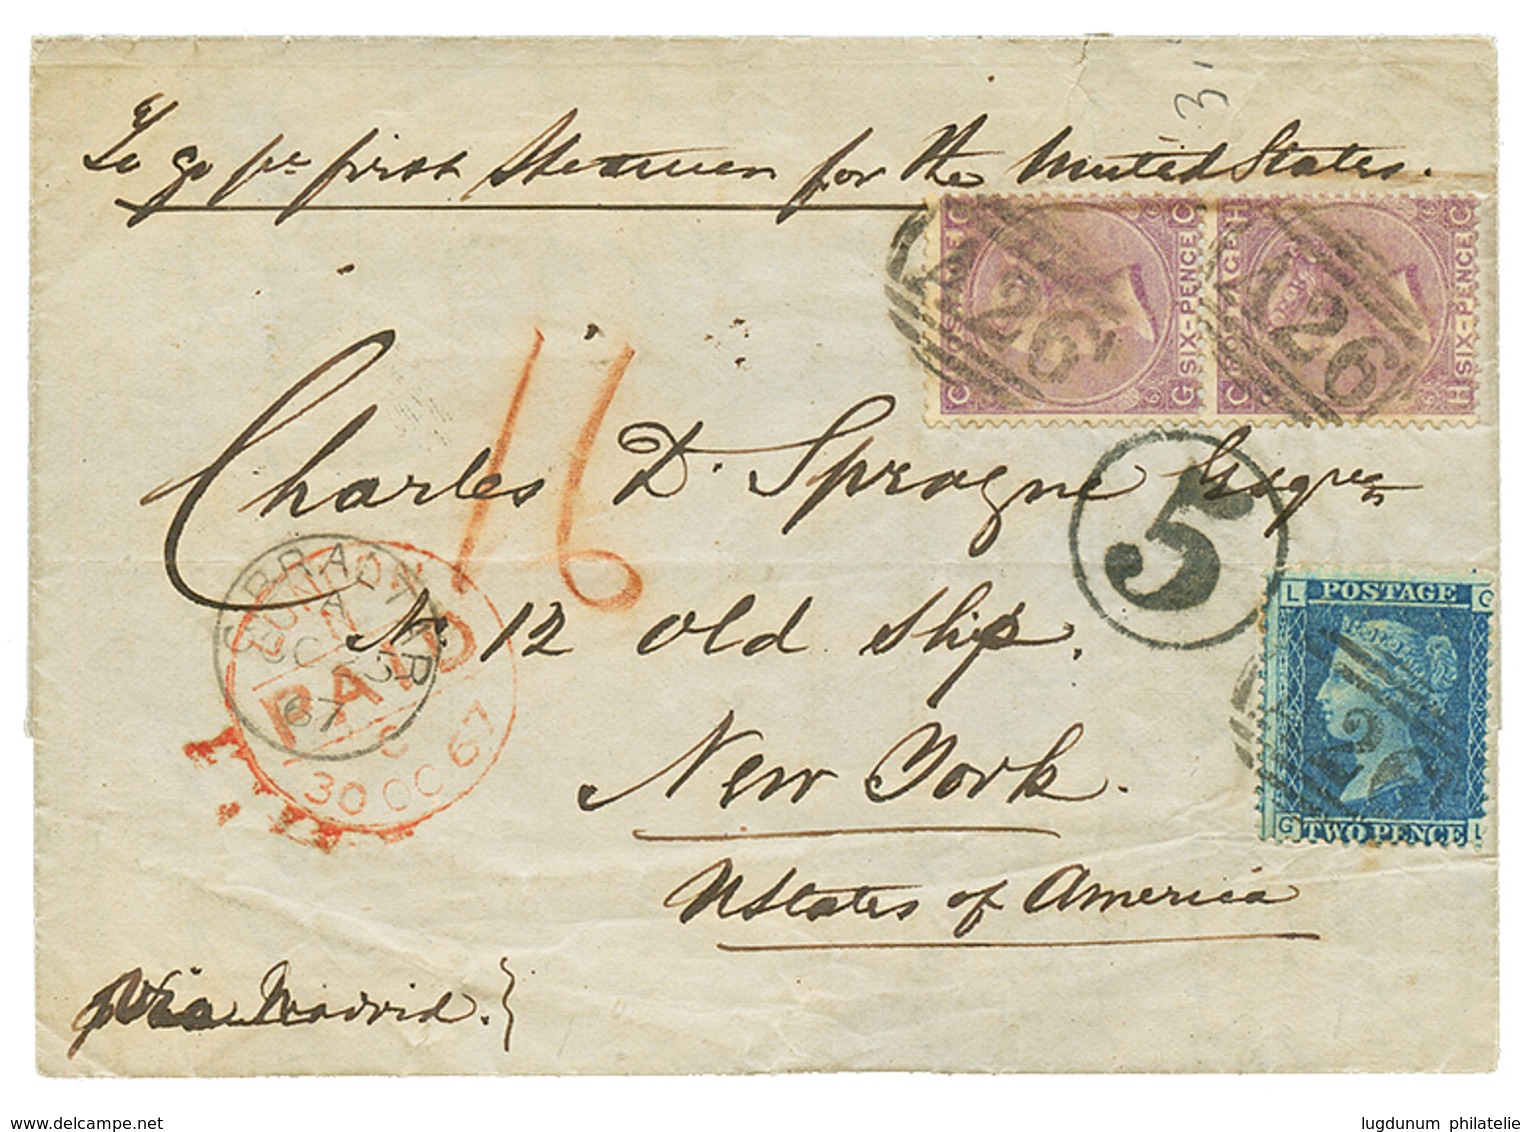 3
To go pr first Steamer for the United States.
POSTAGE
SIX-PENCE
C
G
C
POSTAGE
SIX-PENCE
H
C
C
H
A26
A26
16
Charles D. Sprague Esqre
5
GIBRALTAR
A
OC 22
67
LONDON
PAID
C
30 OC 67
No 12 Old Ship.
L
POSTAGE
G
G
TWO PENCE
L
New York.
UStates of America
pr Via Madrid.
www.delcampe.net
lugdunum philatelie